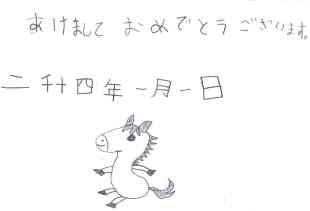 あけまして おめでとう ございます。
二千十四年一月一日